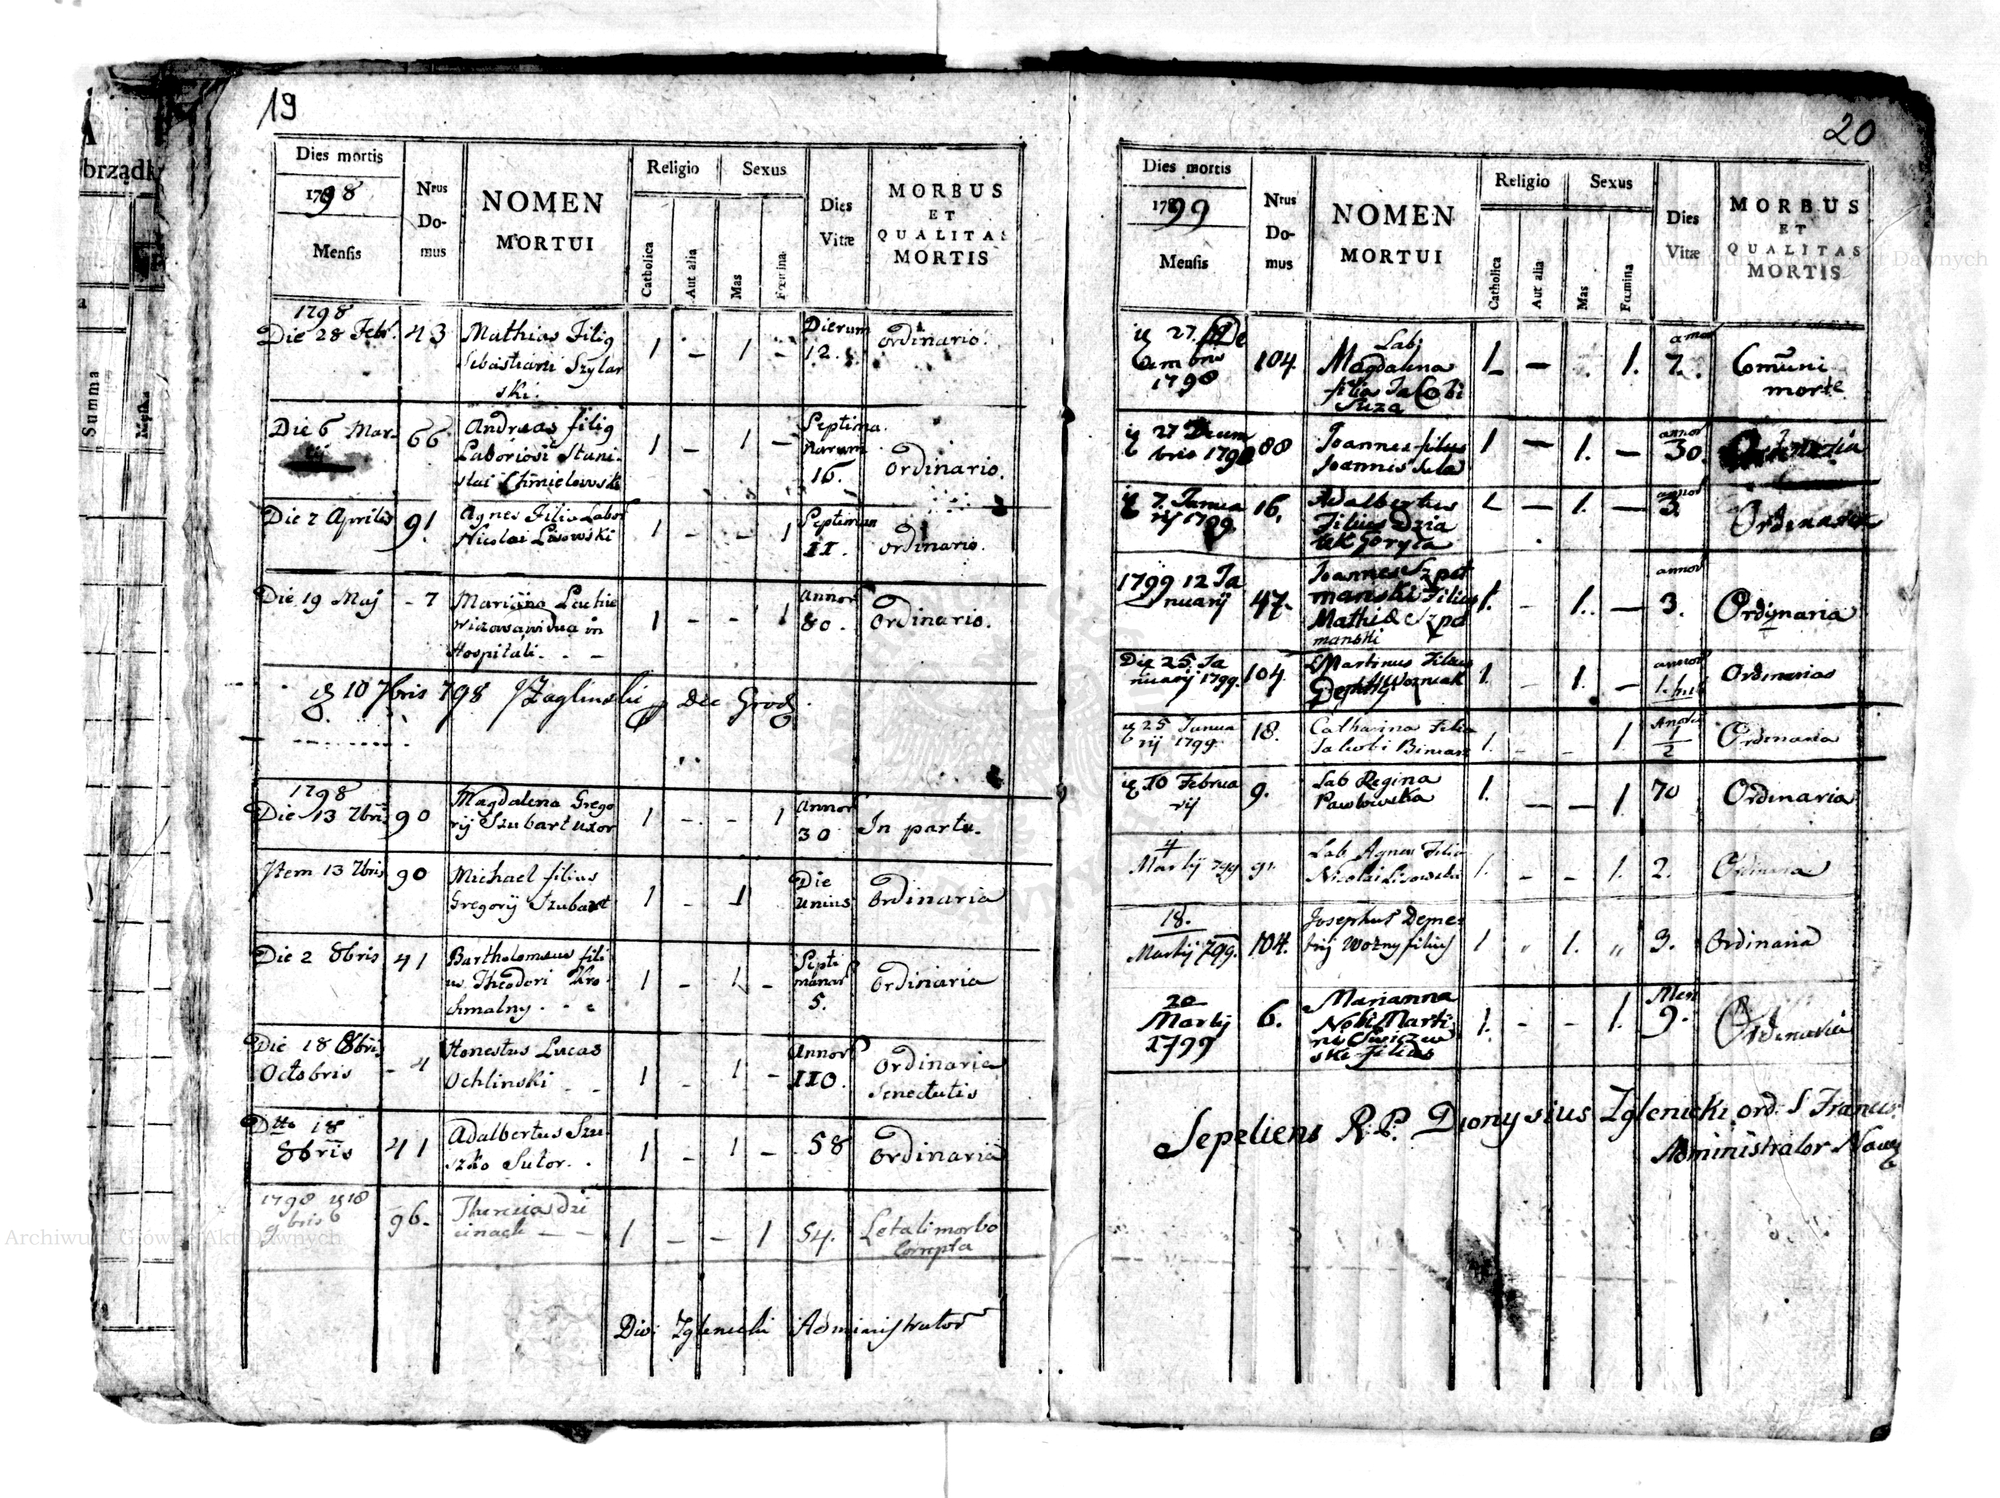 19
Dies mortis
1798
Mensis
Nrus
Do-
mus
NOMEN
MORTUI
Religio
Catholica
Aut alia
Sexus
Mas
Fœmina
Dies
Vitæ
MORBUS
ET
QUALITAS
MORTIS
1798
Die 28 Febr. 43 Mathias Filig 1 – 1 – Dierum Ordinario.
Sebastiani Szylar 12.
ski.
Die 6 Mar- 66 Andreas filig 1 – 1 – Septima
Laboriosi Stani- narum Ordinario.
slai Chmielowski 16.
Die 2 Aprilis 91 Agnes Filia Labor 1 – – 1 Septiman Ordinario.
Nicolai Lisowski 11.
Die 19 Maj – 7 Marianna 1 – – 1 Annor Ordinario.
vidua in 80.
Hospitali. – –
10 7bris 798
1798
Die 13 7bris 90 Magdalena Grego 1 – – 1 Annor In partu.
rij Szubart uxor 30
Item 13 7bris 90 Michael filius 1 – 1 Die Ordinaria
Gregorij Szubart unius
Die 2 8bris 41 Bartholomeus fili 1 – 1 – Septi Ordinaria
us Theodori Kro manar
chmalny. 5.
Die 18 8bris – 4 Honestus Lucas 1 – 1 – Annor Ordinaria
Octobris Ochlinski 110. Senectutis
Dtto 18 41 Adalbertus Szu 1 – 1 – 58 Ordinaria
8bris szko Sutor.
1798 18 96. 1 – – 1 54. Letali morbo
9bris
Administrator
20
Dies mortis
1799
Mensis
Nrus
Do-
mus
NOMEN
MORTUI
Religio
Catholica
Aut alia
Sexus
Mas
Fœmina
Dies
Vitæ
MORBUS
ET
QUALITAS
MORTIS
27 De 104. Lab: 1 – . 1. annor Comuni
cembris Magdalena 7. morte
1798 filia Jacobi
Suza
27 Decem 88 Joannes filius 1 – 1. – annor
bris 1798 Joannis 30.
7. Janua 16. Adalbertus 1 – 1. – annor Ordinaria
rij 1799 Filius 3.
Goryla
1799 12 Ja 47. Joannes Szpet 1. – 1. – annor Ordinaria
nuarij manski Filius 3.
Mathiæ Szpet
manski
Die 25. Ja 104. Martinus Filius 1. – 1. – annor Ordinarias
nuarij 1799. Wozniak 1.
25 Janua 18. Catharina Filia 1. – – 1 1/2 Ordinaria
rij 1799. Jacobi
10 Februa 9. Lab Regina 1. – – 1 70 Ordinaria
rij Pawłowska
4
Martij 799 91. Lab Agnes Filia 1. – – 1. 2.
Nicolai Lisowski
18. Josephus Deme
Martij 799. 104. trij Wozny filius 1 " 1. " 3. Ordinaria
20 6. Marianna 1. – – 1. Men Ordinaria
Martij Nobi Marti 9.
1799 ni
ski Filias
Sepeliens R. P. Dionysius Zglenicki ord: S Francis:
Administrator
Archiwum Główne Akt Dawnych